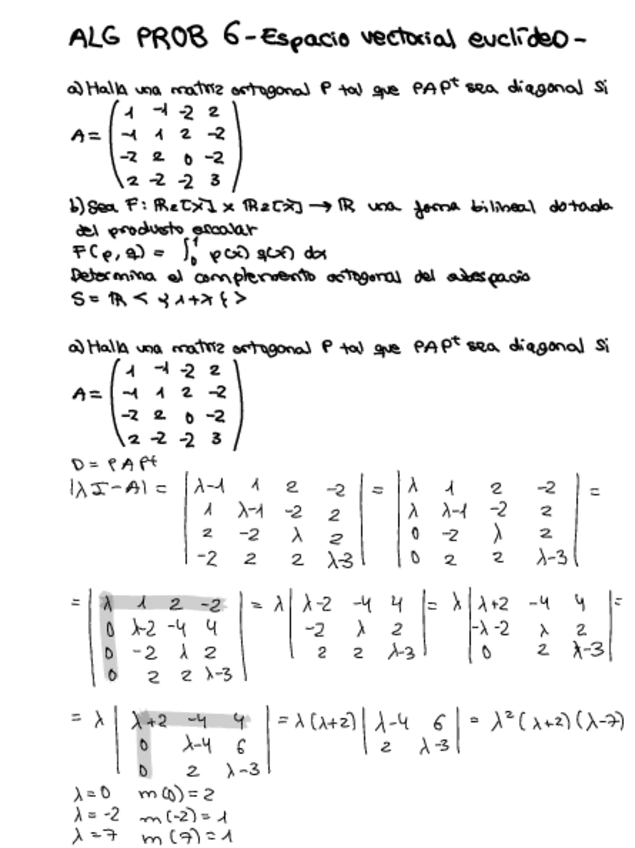 ALG PROB 6 - Espacio vectorial euclídeo -
a) Halla una matriz ortogonal P tal que PAPᵗ sea diagonal si
A = ( 1 -1 -2 2
-1 1 2 -2
-2 2 0 -2
2 -2 -2 3 )
b) Sea F: ℝ₂[x] x ℝ₂[x] → ℝ una forma bilineal dotada
del producto escalar
F(p, q) = ∫₀¹ p(x) q(x) dx
Determina el complemento ortogonal del subespacio
S = ℝ < { 1+x } >
a) Halla una matriz ortogonal P tal que PAPᵗ sea diagonal si
A = ( 1 -1 -2 2
-1 1 2 -2
-2 2 0 -2
2 -2 -2 3 )
D = PAPᵗ
|λI - A| = | λ-1 1 2 -2 | = | λ 1 2 -2 | =
| 1 λ-1 -2 2 | | λ λ-1 -2 2 |
| 2 -2 λ 2 | | 0 -2 λ 2 |
| -2 2 2 λ-3 | | 0 2 2 λ-3 |
= | λ 1 2 -2 | = λ | λ-2 -4 4 | = λ | λ+2 -4 4 | =
| 0 λ-2 -4 4 | | -2 λ 2 | | -λ-2 λ 2 |
| 0 -2 λ 2 | | 2 2 λ-3 | | 0 2 λ-3 |
| 0 2 2 λ-3 |
= λ | λ+2 -4 4 | = λ(λ+2) | λ-4 6 | = λ²(λ+2)(λ-7)
| 0 λ-4 6 | | 2 λ-3 |
| 0 2 λ-3 |
λ = 0 m(0) = 2
λ = -2 m(-2) = 1
λ = 7 m(7) = 1